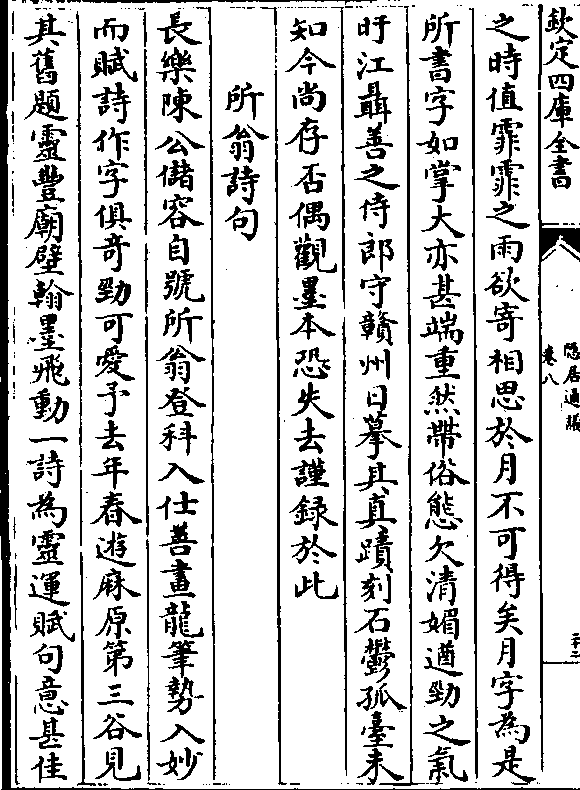 欽定四庫全書
隐居通議
卷八
二十二
之時值霏霏之雨欲寄相思於月不可得矣月字為是
所書字如掌大亦甚端重然帶俗態欠清媚遒勁之氣
旴江聶善之侍郎守贛州日摹其真蹟刻石鬱孤臺未
知今尚存否偶觀墨本恐失去謹録於此
所翁詩句
長樂陳公儲容自號所翁登科入仕善畫龍筆勢入妙
而賦詩作字俱奇勁可愛予去年春遊麻原第三谷見
其舊題靈豐廟壁翰墨飛動一詩為靈運賦句意甚佳